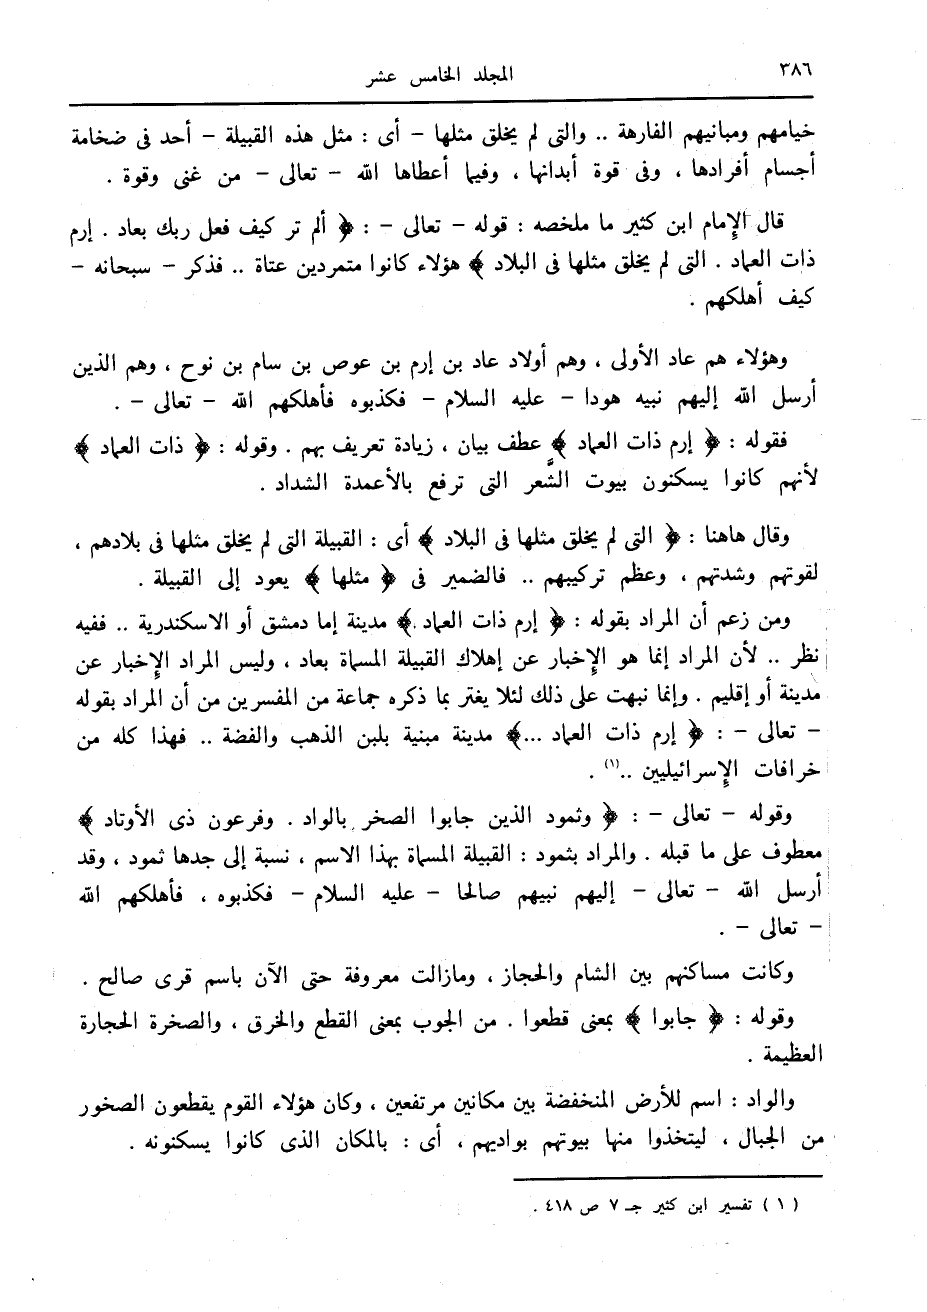 ٣٨٦
المجلد الخامس عشر
خيامهم ومبانيهم الفارهة .. والتى لم يخلق مثلها – أى : مثل هذه القبيلة – أحد فى ضخامة
أجسام أفرادها ، وفى قوة أبدانها ، وفيما أعطاها الله – تعالى – من غنى وقوة .
قال الإمام ابن كثير ما ملخصه : قوله – تعالى – : ﴿ ألم تر كيف فعل ربك بعاد . إرم
ذات العماد . التى لم يخلق مثلها فى البلاد ﴾ هؤلاء كانوا متمردين عتاة .. فذكر – سبحانه –
كيف أهلكهم .
وهؤلاء هم عاد الأولى ، وهم أولاد عاد بن إرم بن عوص بن سام بن نوح ، وهم الذين
أرسل الله إليهم نبيه هودا – عليه السلام – فكذبوه فأهلكهم الله – تعالى – .
فقوله : ﴿ إرم ذات العماد ﴾ عطف بيان ، زيادة تعريف بهم . وقوله : ﴿ ذات العماد ﴾
لأنهم كانوا يسكنون بيوت الشَّعر التى ترفع بالأعمدة الشداد .
وقال هاهنا : ﴿ التى لم يخلق مثلها فى البلاد ﴾ أى : القبيلة التى لم يخلق مثلها فى بلادهم ،
لقوتهم وشدتهم ، وعظم تركيبهم .. فالضمير فى ﴿ مثلها ﴾ يعود إلى القبيلة .
ومن زعم أن المراد بقوله : ﴿ إرم ذات العماد ﴾ مدينة إما دمشق أو الاسكندرية .. ففيه
نظر .. لأن المراد إنما هو الإخبار عن إهلاك القبيلة المسماة بعاد ، وليس المراد الإخبار عن
مدينة أو إقليم . وإنما نبهت على ذلك لئلا يغتر بما ذكره جماعة من المفسرين من أن المراد بقوله
– تعالى – : ﴿ إرم ذات العماد ...﴾ مدينة مبنية بلبن الذهب والفضة .. فهذا كله من
خرافات الإسرائيليين ..(١) .
وقوله – تعالى – : ﴿ وثمود الذين جابوا الصخر بالواد . وفرعون ذى الأوتاد ﴾
معطوف على ما قبله . والمراد بثمود : القبيلة المسماة بهذا الاسم ، نسبة إلى جدها ثمود ، وقد
أرسل الله – تعالى – إليهم نبيهم صالحا – عليه السلام – فكذبوه ، فأهلكهم الله
– تعالى – .
وكانت مساكنهم بين الشام والحجاز ، ومازالت معروفة حتى الآن باسم قرى صالح .
وقوله : ﴿ جابوا ﴾ بمعنى قطعوا . من الجوب بمعنى القطع والخرق ، والصخرة الحجارة
العظيمة .
والواد : اسم للأرض المنخفضة بين مكانين مرتفعين ، وكان هؤلاء القوم يقطعون الصخور
من الجبال ، ليتخذوا منها بيوتهم بواديهم ، أى : بالمكان الذى كانوا يسكنونه .
( ١ ) تفسير ابن كثير جـ ٧ ص ٤١٨ .